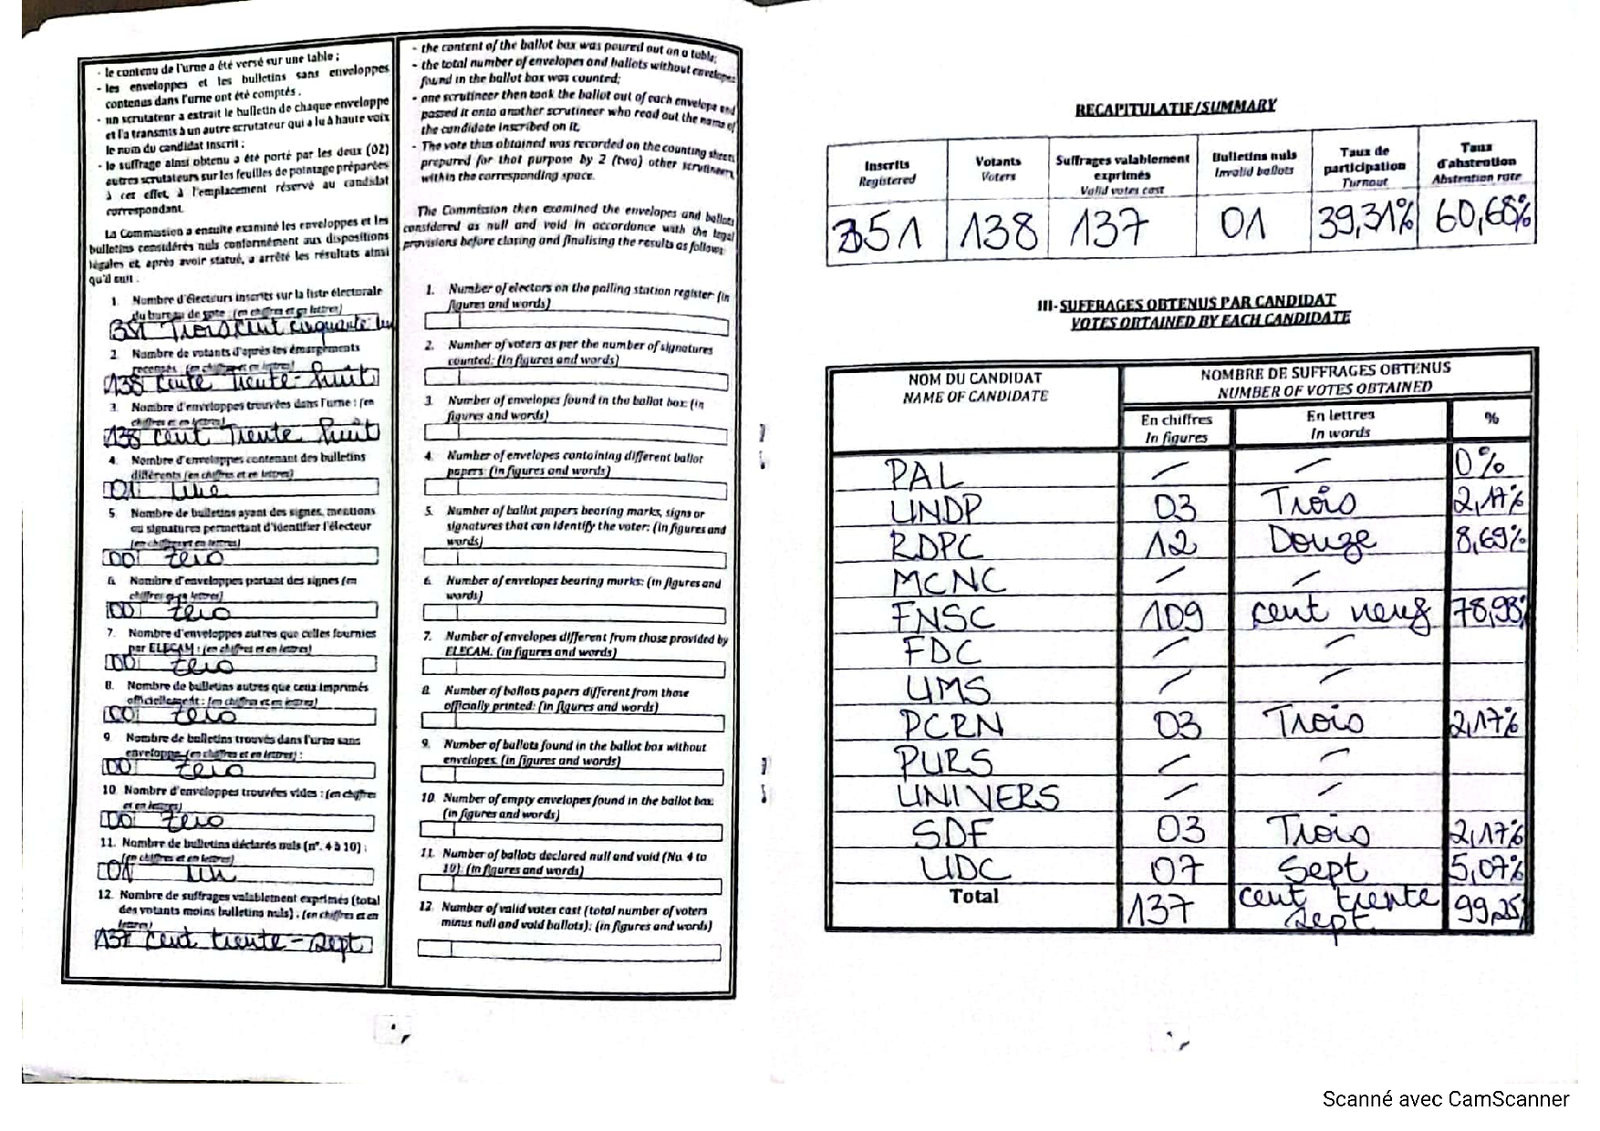 - le contenu de l'urne a été versé sur une table ;
- les enveloppes et les bulletins sans enveloppes
contenus dans l'urne ont été comptés .
- un scrutateur a extrait le bulletin de chaque enveloppe
et l'a transmis à un autre scrutateur qui a lu à haute voix
le nom du candidat inscrit ;
- le suffrage ainsi obtenu a été porté par les deux (02)
autres scrutateurs sur les feuilles de pointage préparées
à cet effet, à l'emplacement réservé au candidat
correspondant.
La Commission a ensuite examiné les enveloppes et les
bulletins considérés nuls conformément aux dispositions
légales et, après avoir statué, a arrêté les résultats ainsi
qu'il suit .
1. Nombre d'électeurs inscrits sur la liste électorale
du bureau de vote : (en chiffres et en lettres)
351 Trois cent cinquante un
2. Nombre de votants d'après les émargements
recensés (en chiffres et en lettres)
138 cente Trente-huit
3. Nombre d'enveloppes trouvées dans l'urne : (en
chiffres et en lettres)
138 cent Trente huit
4. Nombre d'enveloppes contenant des bulletins
différents (en chiffres et en lettres)
01 une
5. Nombre de bulletins ayant des signes, mentions
ou signatures permettant d'identifier l'électeur
(en chiffres et en lettres)
00 zero
6. Nombre d'enveloppes portant des signes (en
chiffres et en lettres)
00 zero
7. Nombre d'enveloppes autres que celles fournies
par ELECAM : (en chiffres et en lettres)
00 zero
8. Nombre de bulletins autres que ceux imprimés
officiellement : (en chiffres et en lettres)
00 zero
9. Nombre de bulletins trouvés dans l'urne sans
enveloppe (en chiffres et en lettres) :
00 zero
10. Nombre d'enveloppes trouvées vides : (en chiffres
et en lettres)
00 zero
11. Nombre de bulletins déclarés nuls (n°. 4 à 10) :
(en chiffres et en lettres)
01 un
12. Nombre de suffrages valablement exprimés (total
des votants moins bulletins nuls) . (en chiffres et en
lettres)
137 cent trente-sept
- the content of the ballot box was poured out on a table;
- the total number of envelopes and ballots without envelopes
found in the ballot box was counted;
- one scrutineer then took the ballot out of each envelope and
passed it onto another scrutineer who read out the name of
the candidate inscribed on it,
- The vote thus obtained was recorded on the counting sheets
prepared for that purpose by 2 (two) other scrutineers
within the corresponding space.
The Commission then examined the envelopes and ballots
considered as null and void in accordance with the legal
provisions before closing and finalising the results as follows
1. Number of electors on the polling station register (in
figures and words)
2. Number of voters as per the number of signatures
counted: (in figures and words)
3. Number of envelopes found in the ballot box: (in
figures and words)
4. Number of envelopes containing different ballot
papers: (in figures and words)
5. Number of ballot papers bearing marks, signs or
signatures that can identify the voter: (in figures and
words)
6. Number of envelopes bearing marks: (in figures and
words)
7. Number of envelopes different from those provided by
ELECAM. (in figures and words)
8. Number of ballots papers different from those
officially printed: (in figures and words)
9. Number of ballots found in the ballot box without
envelopes. (in figures and words)
10. Number of empty envelopes found in the ballot box:
(in figures and words)
11. Number of ballots declared null and void (No. 4 to
10): (in figures and words)
12. Number of valid votes cast (total number of voters
minus null and void ballots): (in figures and words)
RECAPITULATIF/SUMMARY
Inscrits Registered | Votants Voters | Suffrages valablement exprimés Valid votes cast | Bulletins nuls Invalid ballots | Taux de participation Turnout | Taux d'abstention Abstention rate
351 138 137 01 39,31% 60,68%
III- SUFFRAGES OBTENUS PAR CANDIDAT
VOTES OBTAINED BY EACH CANDIDATE
NOM DU CANDIDAT NOMBRE DE SUFFRAGES OBTENUS
NAME OF CANDIDATE NUMBER OF VOTES OBTAINED
En chiffres En lettres %
In figures In words
PAL / / 0%
UNDP 03 Trois 2,17%
RDPC 12 Douze 8,69%
MCNC / /
FNSC 109 cent neuf 78,98%
FDC / /
UMS / /
PCRN 03 Trois 2,17%
PURS / /
UNIVERS / /
SDF 03 Trois 2,17%
UDC 07 Sept 5,07%
Total 137 cent trente sept 99,25
Scanné avec CamScanner